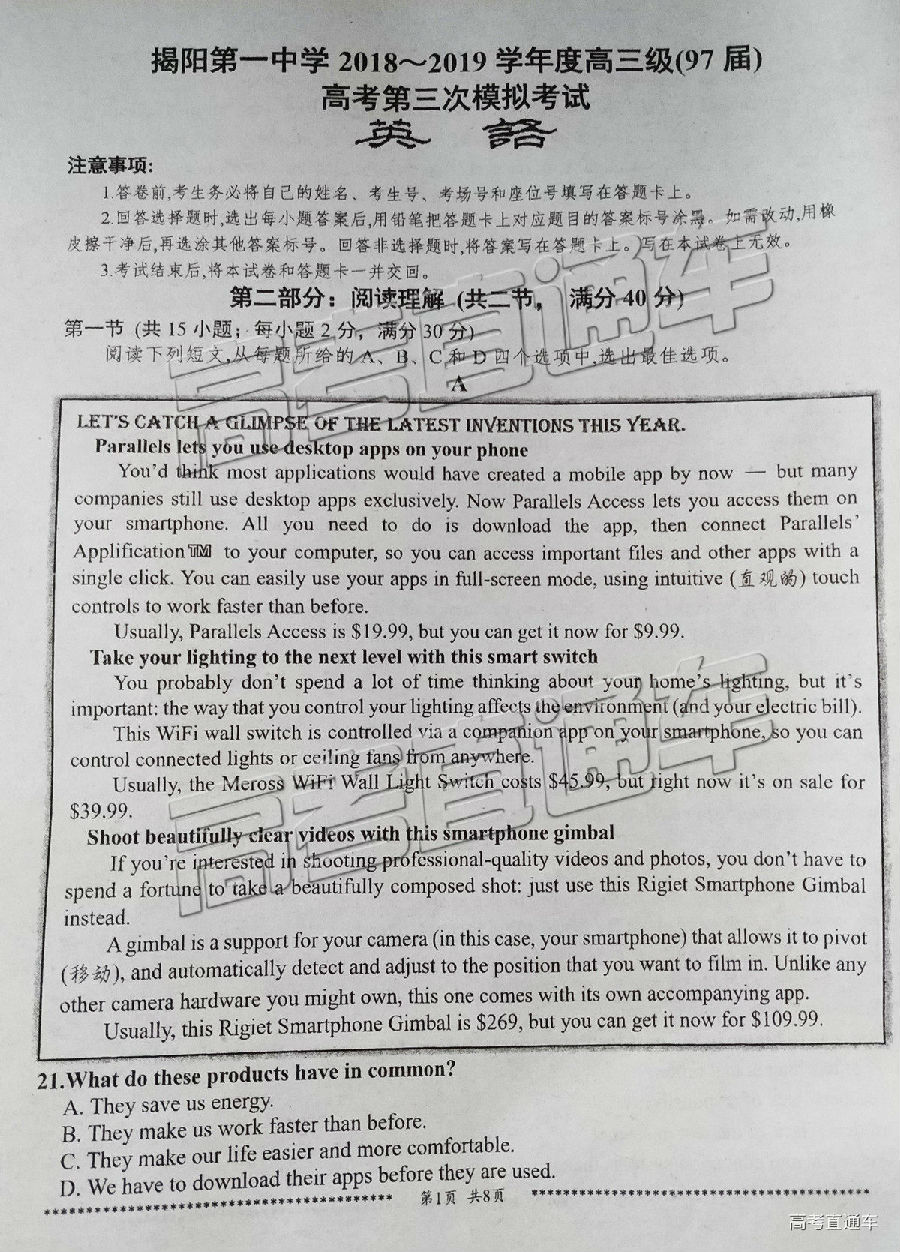 揭阳第一中学 2018～2019 学年度高三级(97 届)
高考第三次模拟考试
英 語
注意事项:
1.答卷前,考生务必将自己的姓名、考生号、考场号和座位号填写在答题卡上。
2.回答选择题时,选出每小题答案后,用铅笔把答题卡上对应题目的答案标号涂黑。如需改动,用橡
皮擦干净后,再选涂其他答案标号。回答非选择题时,将答案写在答题卡上。写在本试卷上无效。
3.考试结束后,将本试卷和答题卡一并交回。
第二部分：阅读理解 (共二节， 满分 40 分)
第一节 (共 15 小题；每小题 2 分，满分 30 分)
阅读下列短文,从每题所给的 A、B、C 和 D 四个选项中,选出最佳选项。
A
LET'S CATCH A GLIMPSE OF THE LATEST INVENTIONS THIS YEAR.
Parallels lets you use desktop apps on your phone
You'd think most applications would have created a mobile app by now — but many
companies still use desktop apps exclusively. Now Parallels Access lets you access them on
your smartphone. All you need to do is download the app, then connect Parallels'
Applification™ to your computer, so you can access important files and other apps with a
single click. You can easily use your apps in full-screen mode, using intuitive (直观的) touch
controls to work faster than before.
Usually, Parallels Access is $19.99, but you can get it now for $9.99.
Take your lighting to the next level with this smart switch
You probably don't spend a lot of time thinking about your home's lighting, but it's
important: the way that you control your lighting affects the environment (and your electric bill).
This WiFi wall switch is controlled via a companion app on your smartphone, so you can
control connected lights or ceiling fans from anywhere.
Usually, the Meross WiFi Wall Light Switch costs $45.99, but right now it's on sale for
$39.99.
Shoot beautifully clear videos with this smartphone gimbal
If you're interested in shooting professional-quality videos and photos, you don't have to
spend a fortune to take a beautifully composed shot: just use this Rigiet Smartphone Gimbal
instead.
A gimbal is a support for your camera (in this case, your smartphone) that allows it to pivot
(移动), and automatically detect and adjust to the position that you want to film in. Unlike any
other camera hardware you might own, this one comes with its own accompanying app.
Usually, this Rigiet Smartphone Gimbal is $269, but you can get it now for $109.99.
21.What do these products have in common?
A. They save us energy.
B. They make us work faster than before.
C. They make our life easier and more comfortable.
D. We have to download their apps before they are used.
第1页 共8页
高考直通车
高考直通车
高考直通车